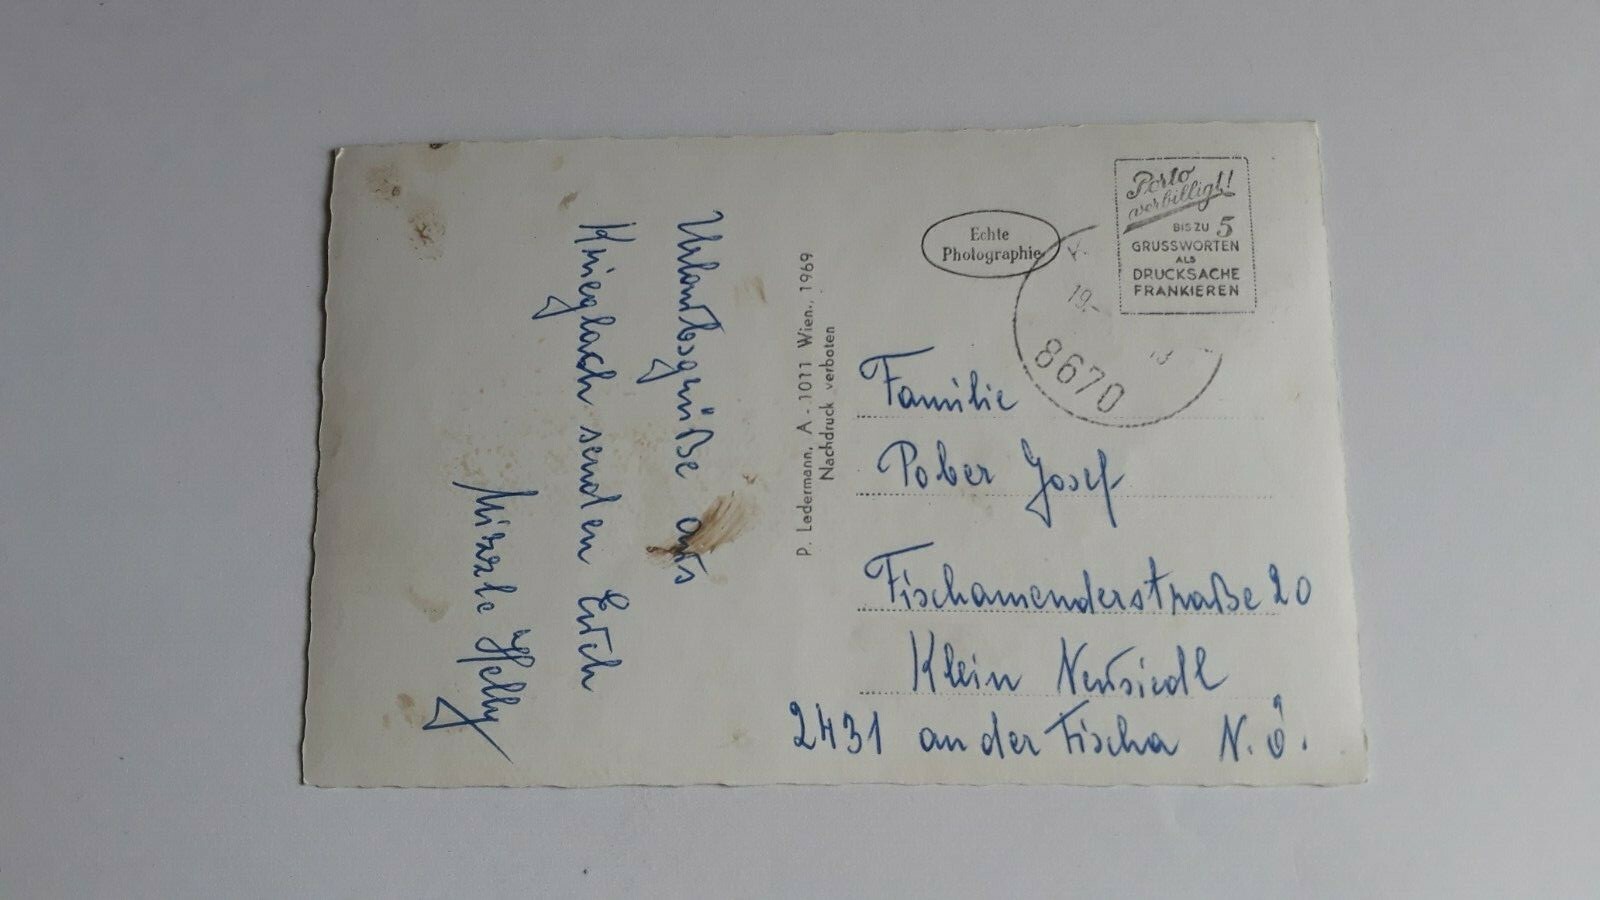 Urlaubsgrüße aus
Krieglach senden Euch
Mizzle Helly
P. Ledermann, A - 1011 Wien., 1969
Nachdruck verboten
Echte
Photographie
Porto
verbilligt!!
BIS ZU 5
GRUSSWORTEN
ALS
DRUCKSACHE
FRANKIEREN
19.-
8670
Familie
Pober Josef
Fischamenderstraße 20
Klein Neusiedl
2431 an der Fischa N.Ö.